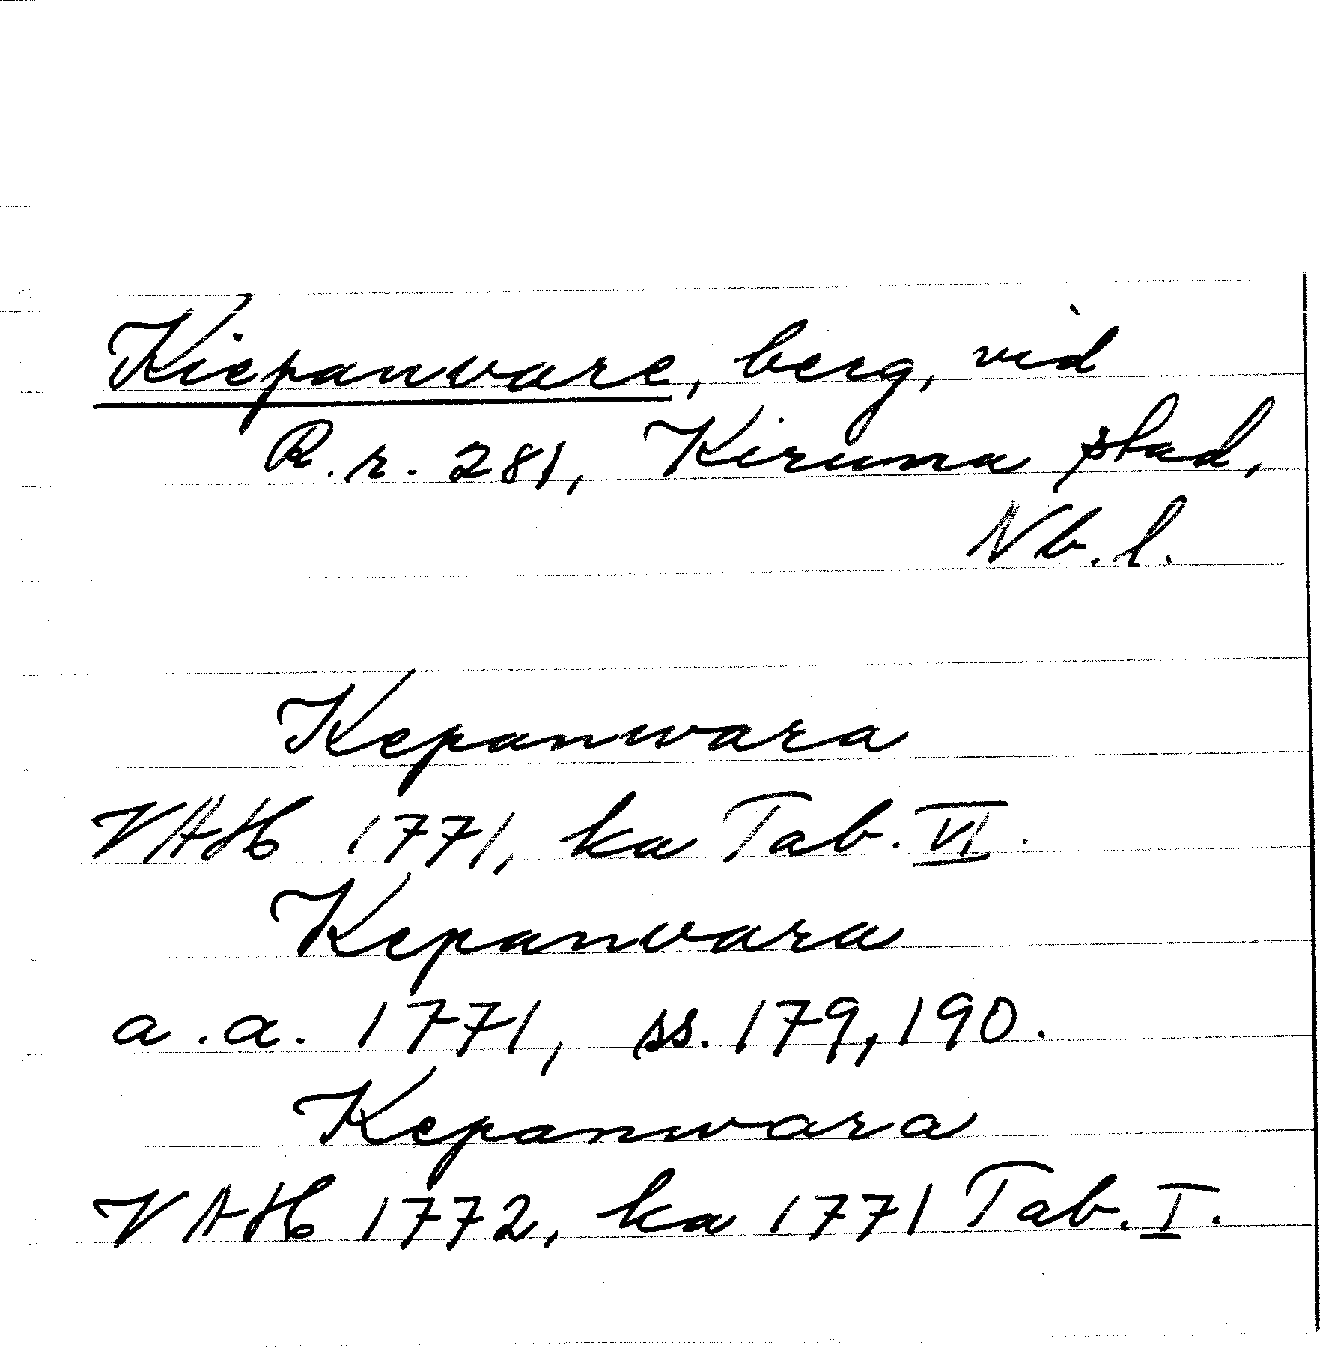 Kiepanvare, berg, vid
R.r. 281, Kiruna stad,
Nb.l.
Kepanwara
VAH 1771, ka Tab. VI.
Kepanvara
a.a. 1771, ss. 179, 190.
Kepanwara
VAH 1772, ka 1771 Tab. I.